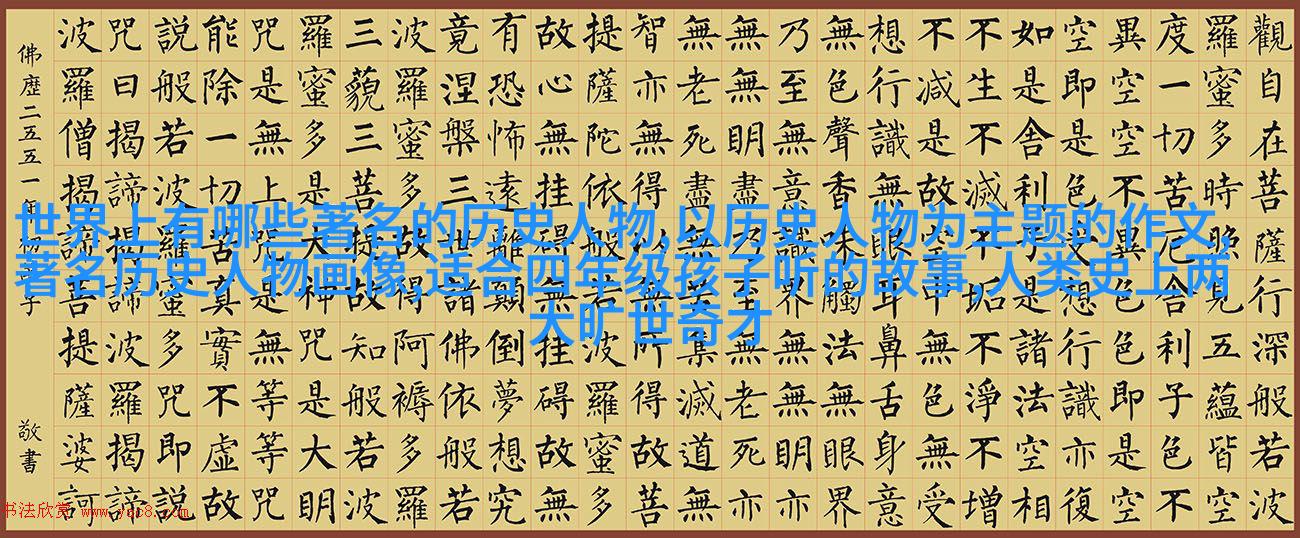 觀自在菩薩行深般若波
羅蜜多時照見五蘊皆空
度一切苦厄舍利子色不
異空空不異色色即是空
空即是色受想行識亦復
如是舍利子是諸法空相
不生不滅不垢不淨不增
不減是故空中無色無受
想行識無眼耳鼻舌身意
無色聲香味觸法無眼界
乃至無意識界無無明亦
無無明盡乃至無老死亦
無老死盡無苦集滅道無
智亦無得以無所得故菩
提薩陀依般若波羅蜜多
故心無挂礙無挂礙故無
有恐怖遠離顛倒夢想究
竟涅槃三世諸佛依般若
波羅蜜多故得阿褥多羅
三藐三菩提故知般若波
羅蜜多是大神咒是大明
咒是無上咒是無等等咒
能除一切苦真實不虛故
說般若波羅蜜多咒即說
咒曰揭諦揭諦波羅揭諦
波羅僧揭諦菩提薩婆訶
佛歷二五五一年楊子
敬書
世界上有哪些著名的历史人物,以历史人物为主题的作文,
著名历史人物画像,适合四年级孩子听的故事,人类史上两
大旷世奇才
书法欣赏 www.yac8.com